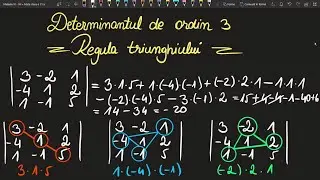 Determinantul de ordin 3
= Regula triunghiului =
| 3 -2 1 |
| -4 1 2 | = 3·1·5 + 1·(-4)·(-1) + (-2)·2·1 - 1·1·1
| 1 -1 5 | - (-2)·(-4)·5 - 3·(-1)·2 = 15 + 4 - 4 - 1 - 40 + 6
= 14 - 34 = -20
| 3 -2 1 | | 3 -2 1 | | 3 -2 1 |
| -4 1 2 | | -4 1 2 | | -4 1 2 |
| 1 -1 5 | | 1 -1 5 | | 1 -1 5 |
3·1·5 1·(-4)·(-1) (-2)·2·1